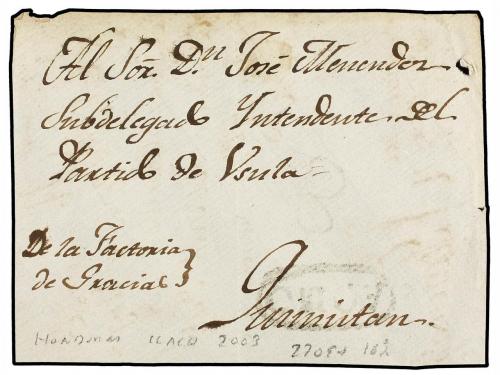 Al Sor. Dn. José Menendez
Subdelegado Yntendente del
Partido de Usula
De la Factoria
de Gracias
Quimistan.
HONDURAS 2003